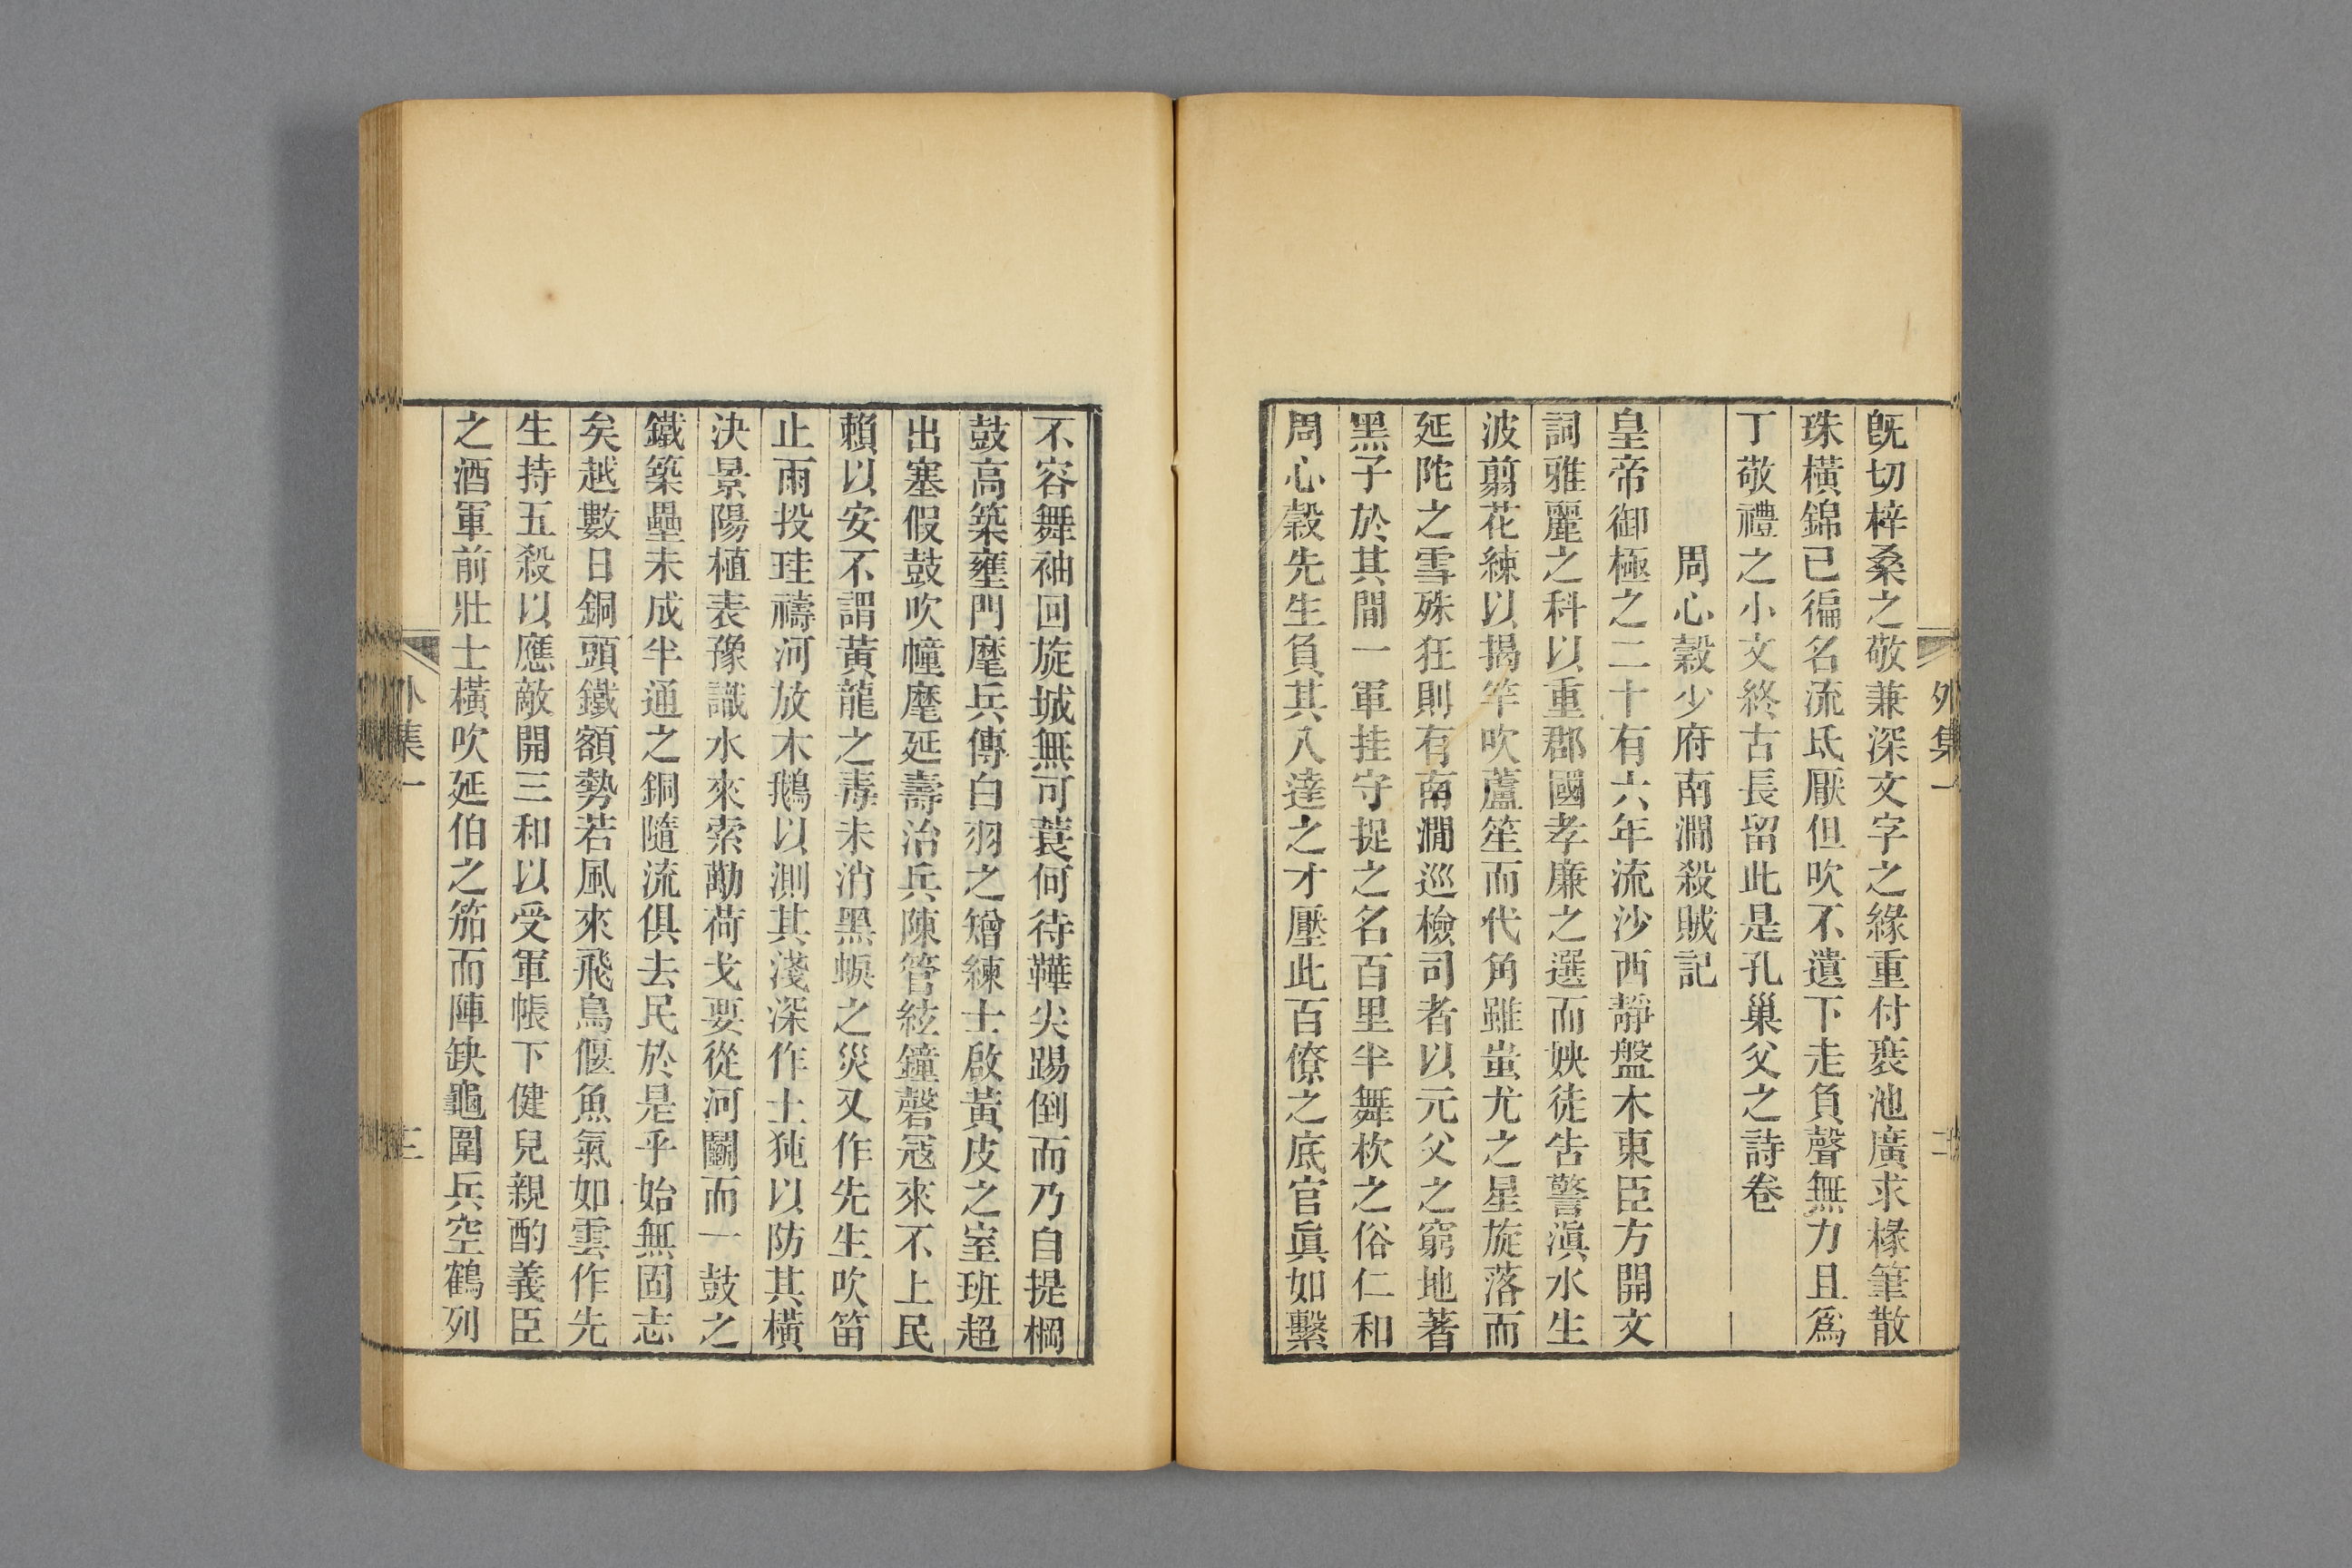 外集一
二
既切梓桑之敬兼深文字之緣重付裹池廣求椽筆散
珠橫錦已徧名流氐厭但吹不遺下走負聲無力且爲
丁敬禮之小文終古長留此是孔巢父之詩卷
周心穀少府南澗殺賊記
皇帝御極之二十有六年流沙西靜盤木東臣方開文
詞雅麗之科以重郡國孝廉之選而妜徒告警滇水生
波翦花練以揭竿吹蘆笙而代角雖蚩尤之星旋落而
延陀之雪殊狂則有南澗巡檢司者以元父之窮地著
黑子於其間一軍挂守捉之名百里半舞栨之俗仁和
周心穀先生負其八達之才壓此百僚之底官眞如繫
不容舞袖回旋城無可蓑何待鞾尖踢倒而乃自提棡
鼓高築壅門麾兵傳白羽之矰練士啟黃皮之室班超
出塞假鼓吹幢麾延壽治兵陳管絃鐘磬寇來不上民
賴以安不謂黃龍之毒未消黑蜧之災又作先生吹笛
止雨投珪禱河放木鵝以測其淺深作土㹠以防其橫
決景陽植表豫識水來索勱荷戈要從河鬭而一鼓之
鐵築壘未成半通之銅隨流俱去民於是乎始無固志
矣越數日銅頭鐵額勢若風來飛鳥偃魚氣如雲作先
生持五殺以應敵開三和以受軍帳下健兒親酌義臣
之酒軍前壯士橫吹延伯之笳而陣缺龜圍兵空鶴列
外集一
三